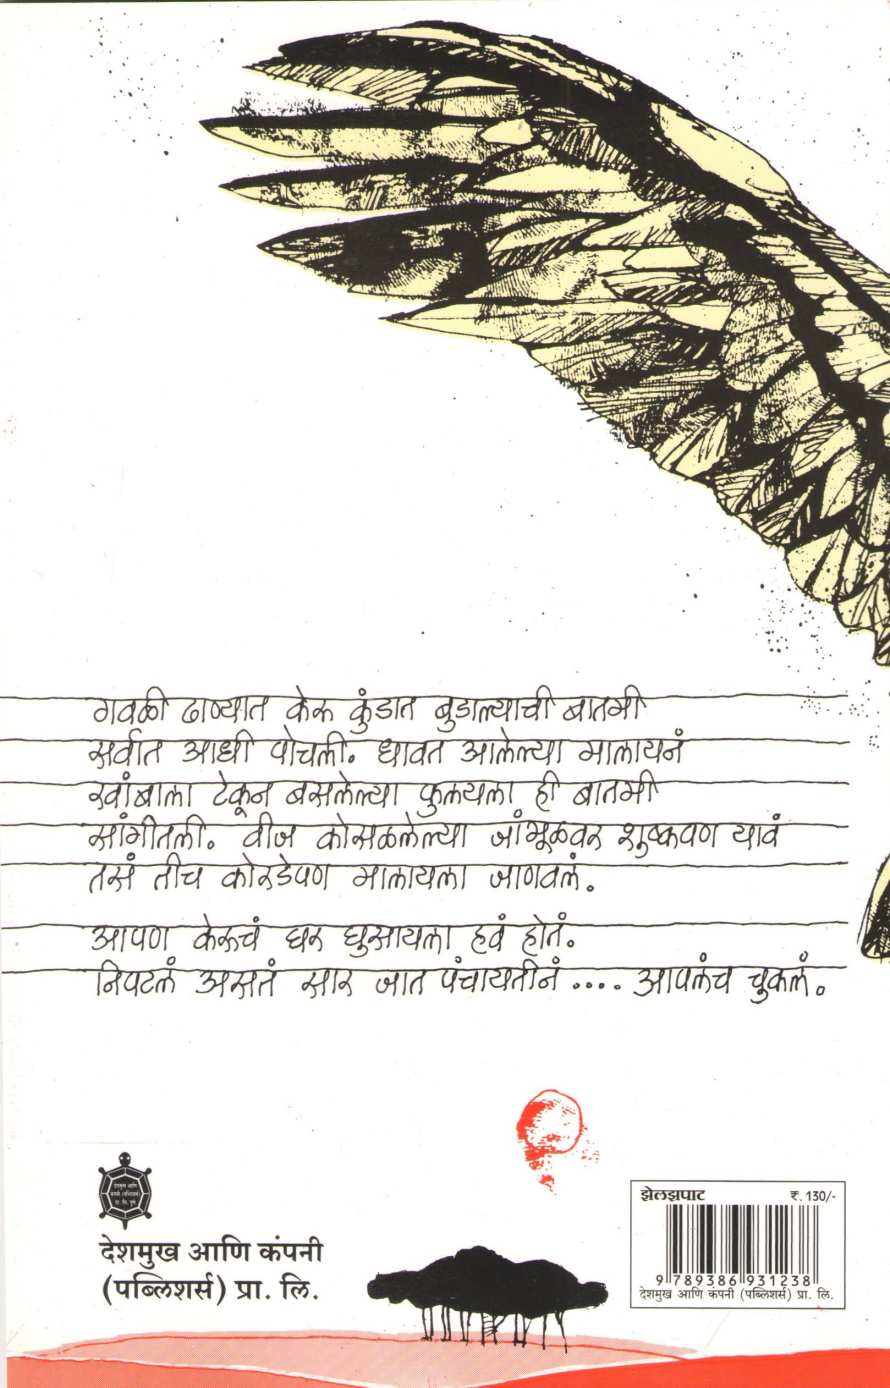 गवळी ढाण्यात केरू कुंडात बुडाल्याची बातमी
सर्वात आधी पोचली. धावत आलेल्या मालायनं
खांबाला टेकून बसलेल्या फुलयला ही बातमी
सांगीतली. वीज कोसळलेल्या जांभूळवर शुष्कपण यावं
तसं तीच कोरडेपण मालायला जाणवलं.
आपण केरूचं घर घुसायला हवं होतं.
निपटलं असतं सार जात पंचायतीनं .... आपलंच चुकलं.
देशमुख आणि
कंपनी (पब्लिशर्स)
प्रा. लि. पुणे
देशमुख आणि कंपनी
(पब्लिशर्स) प्रा. लि.
झेलझपाट ₹. 130/-
9 789386 931238
देशमुख आणि कंपनी (पब्लिशर्स) प्रा. लि.